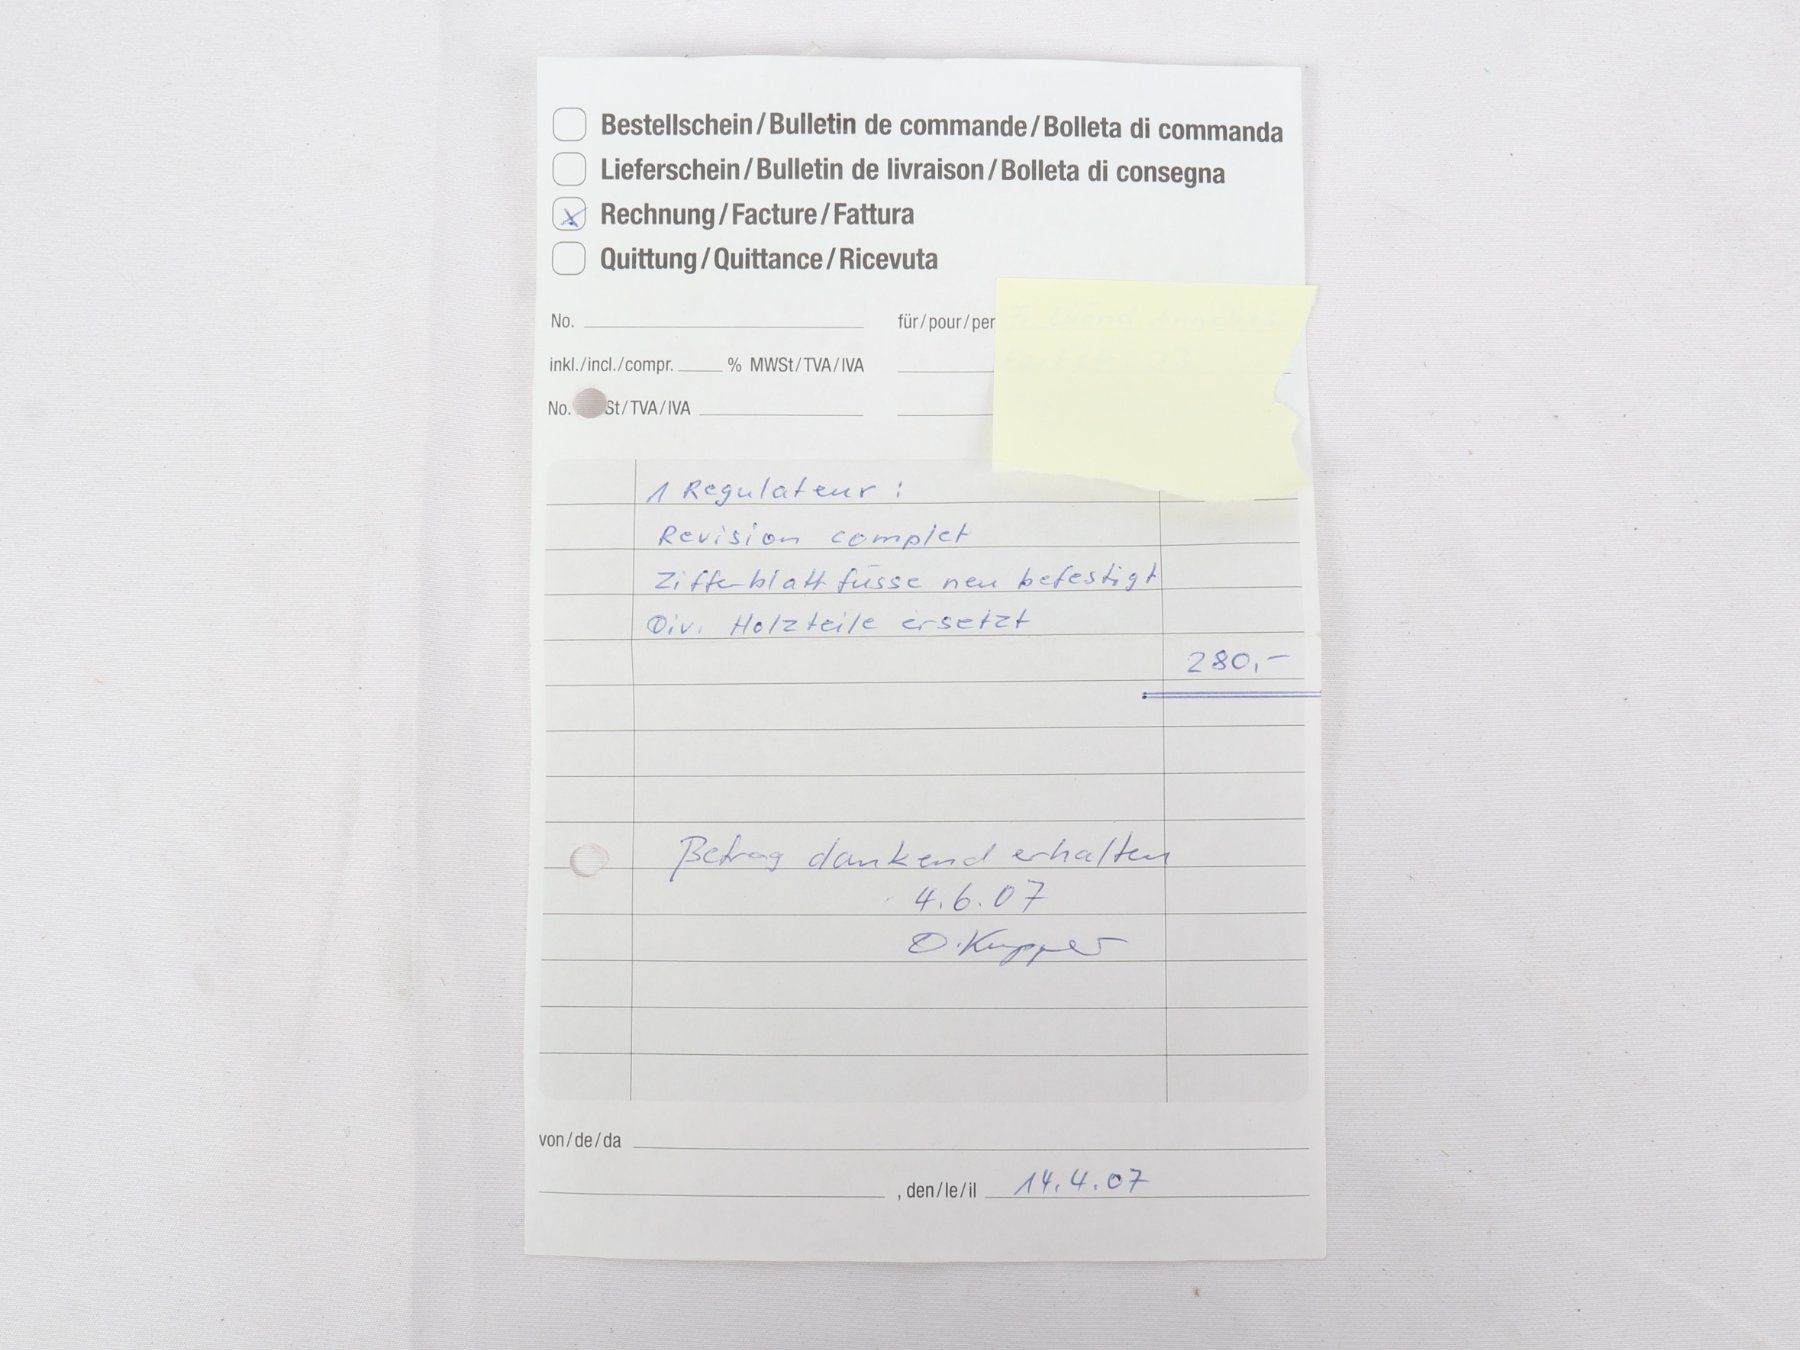 Bestellschein/Bulletin de commande/Bolleta di commanda
Lieferschein/Bulletin de livraison/Bolleta di consegna
Rechnung/Facture/Fattura
Quittung/Quittance/Ricevuta
No. für/pour/per
inkl./incl./compr. % MWSt/TVA/IVA
No. St/TVA/IVA
1 Regulateur:
Revision complet
Zifferblattfüsse neu befestigt
Div. Holzteile ersetzt
280,-
Betrag dankend erhalten
4.6.07
von/de/da
, den/le/il 14.4.07